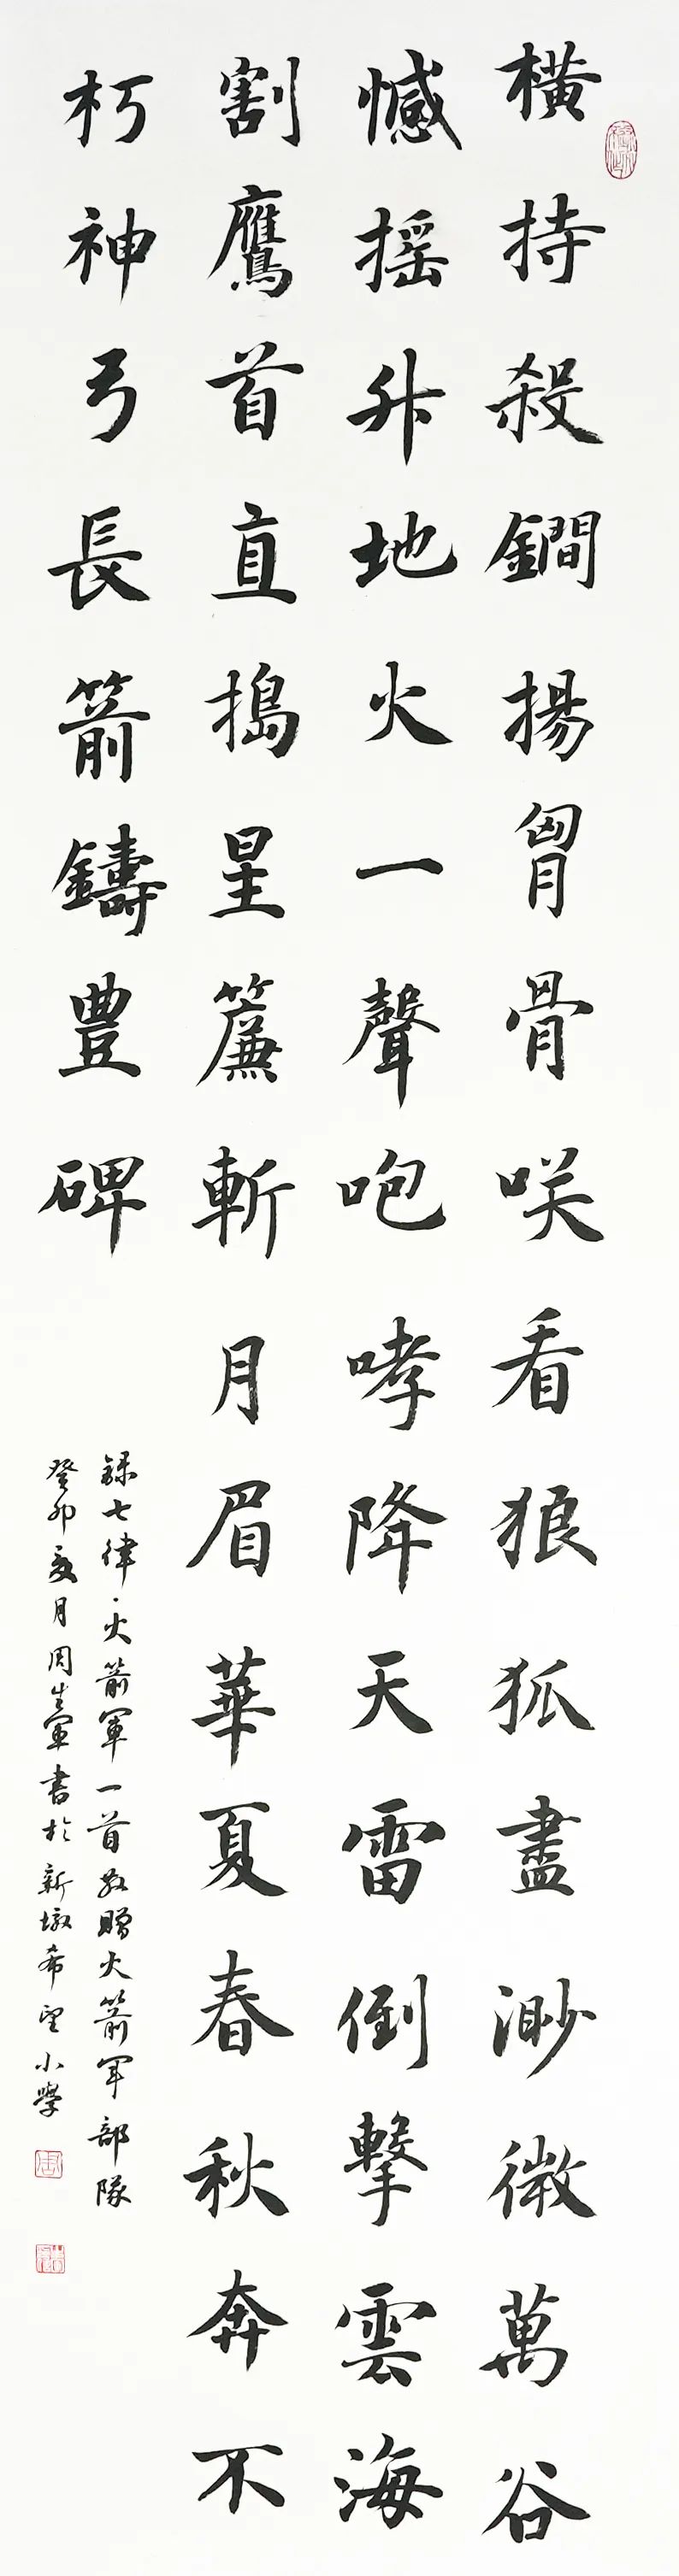 橫持殺鐧揚胷骨咲看狼狐盡渺微萬谷
憾摇升地火一聲咆哮降天雷倒擊雲海
割鷹首直搗星簾斬月眉華夏春秋奔不
朽神弓長箭鑄豊碑
録七律·火箭軍一首敬贈火箭军部隊
癸卯夏月周生軍書於新墩希望小學